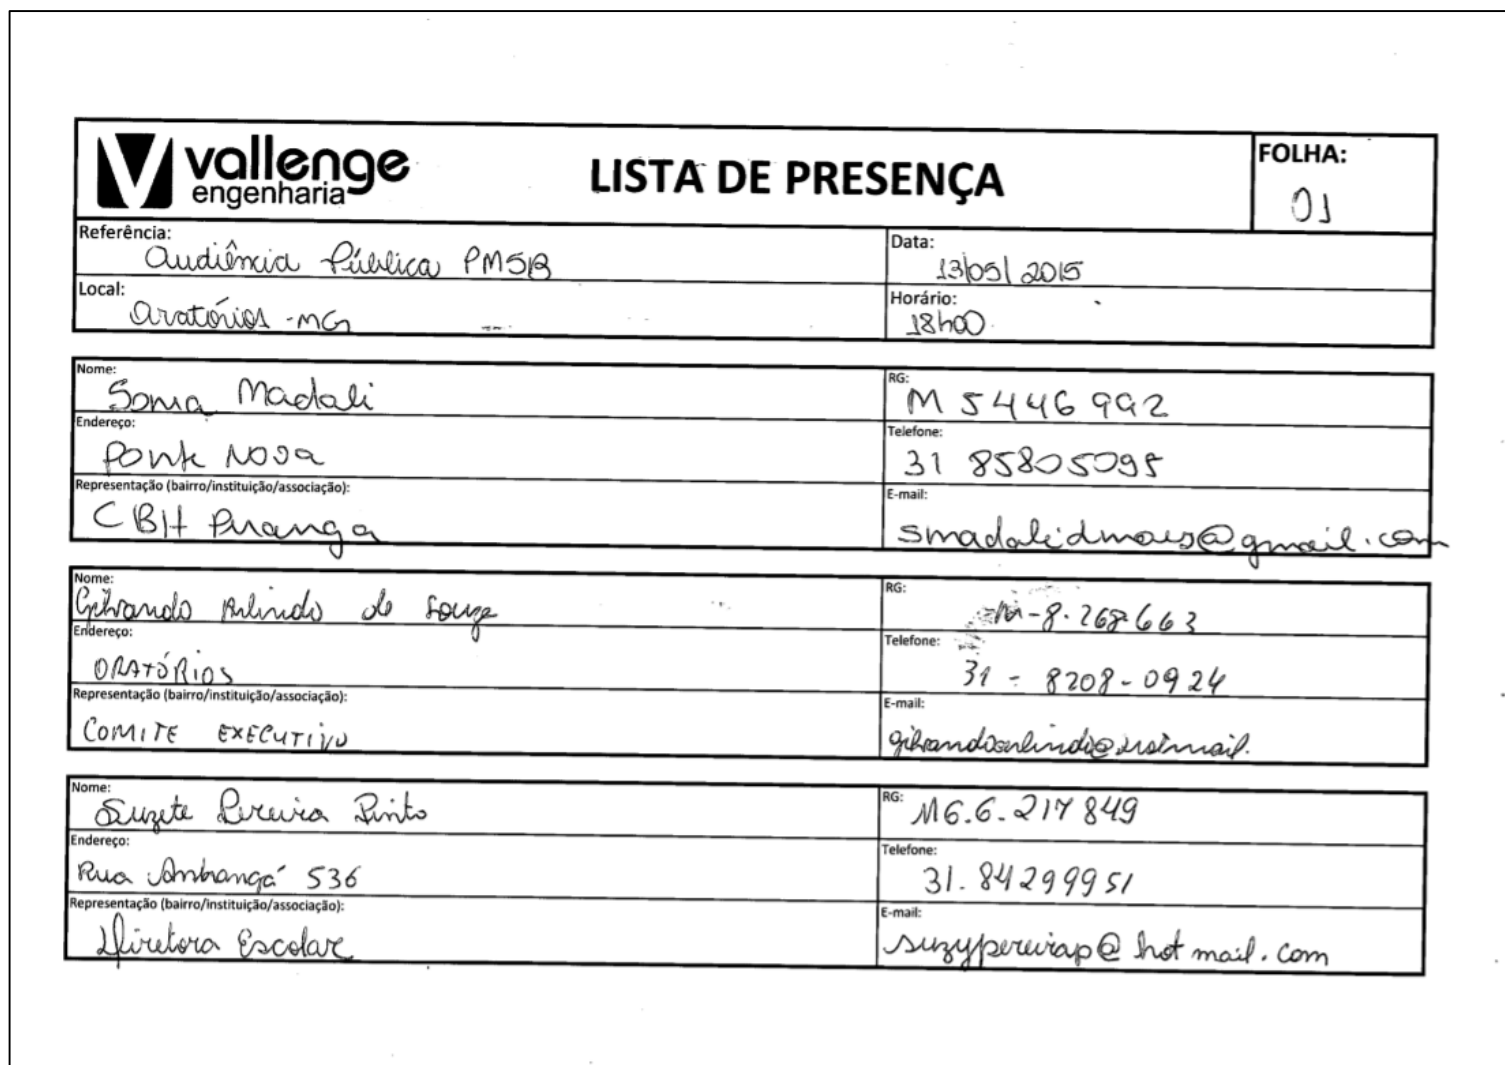 vallenge
engenharia
LISTA DE PRESENÇA
FOLHA:
01
Referência:
Audiência Pública PMSB
Data:
13/05/2015
Local:
Oratórios - MG
Horário:
18h00
Nome:
Sonia Madali
RG:
M 5446992
Endereço:
Ponte Nova
Telefone:
31 85805095
Representação (bairro/instituição/associação):
CBH Piranga
E-mail:
@gmail.com
Nome:
Arlindo de Souza
RG:
M-8.268.663
Endereço:
ORATÓRIOS
Telefone:
31 - 8208-0924
Representação (bairro/instituição/associação):
COMITE EXECUTIVO
E-mail:
Nome:
Suzete Pereira Pinto
RG:
MG.6.217849
Endereço:
Rua 536
Telefone:
31.84299951
Representação (bairro/instituição/associação):
Diretora Escolar
E-mail:
suzypereirap@hotmail.com